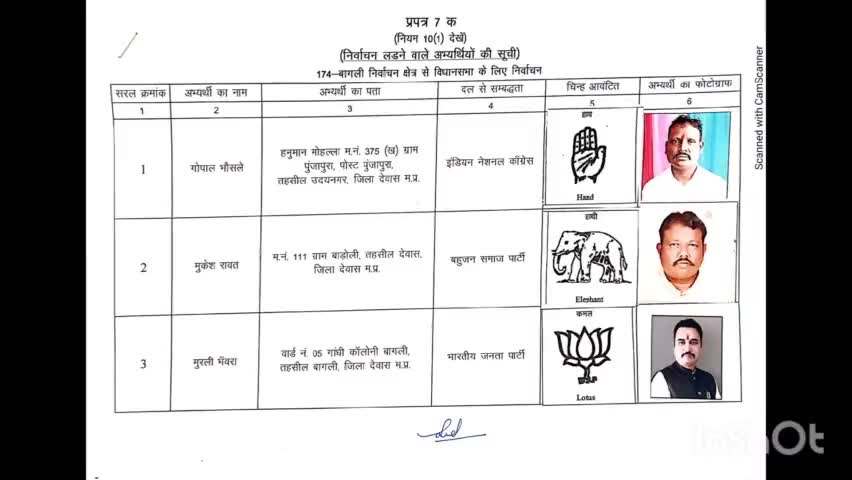 प्रपत्र 7 क
(नियम 10(1) देखें)
(निर्वाचन लडने वाले अभ्यर्थियों की सूची)
174–बागली निर्वाचन क्षेत्र से विधानसभा के लिए निर्वाचन
सरल क्रमांक अभ्यर्थी का नाम अभ्यर्थी का पता दल से सम्बद्धता चिन्ह आवंटित अभ्यर्थी का फोटोग्राफ
1 2 3 4 5 6
1 गोपाल भौसले हनुमान मोहल्ला म.नं. 375 (ख) ग्राम
पुंजापुरा, पोस्ट पुंजापुरा,
तहसील उदयनगर, जिला देवास म.प्र.
इंडियन नेशनल काँग्रेस
हाथ
Hand
2 मुकेश रावत म.नं. 111 ग्राम बाड़ोली, तहसील देवास,
जिला देवास म.प्र.
बहुजन समाज पार्टी
हाथी
Elephant
3 मुरली भँवरा वार्ड नं. 05 गांधी कॉलोनी बागली,
तहसील बागली, जिला देवास म.प्र.
भारतीय जनता पार्टी
कमल
Lotus
Scanned with CamScanner